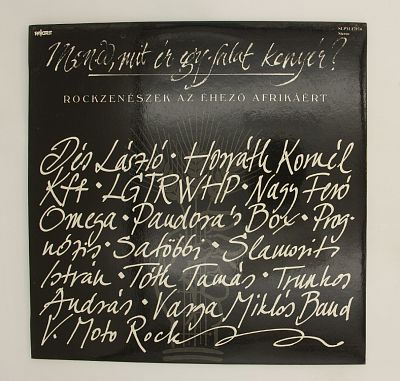 Stereo
Mondd, mit ér egy falat kenyér?
ROCKZENÉSZEK AZ ÉHEZŐ AFRIKÁÉRT
Dés László · Horváth Kornél
Kft · LGTRWHP · Nagy Feró
Omega · Pandora's Box · Prog-
nózis · Satöbbi · Slamovits
István · Tóth Tamás · Trunkos
András · Varga Miklós Band
V. Moto Rock